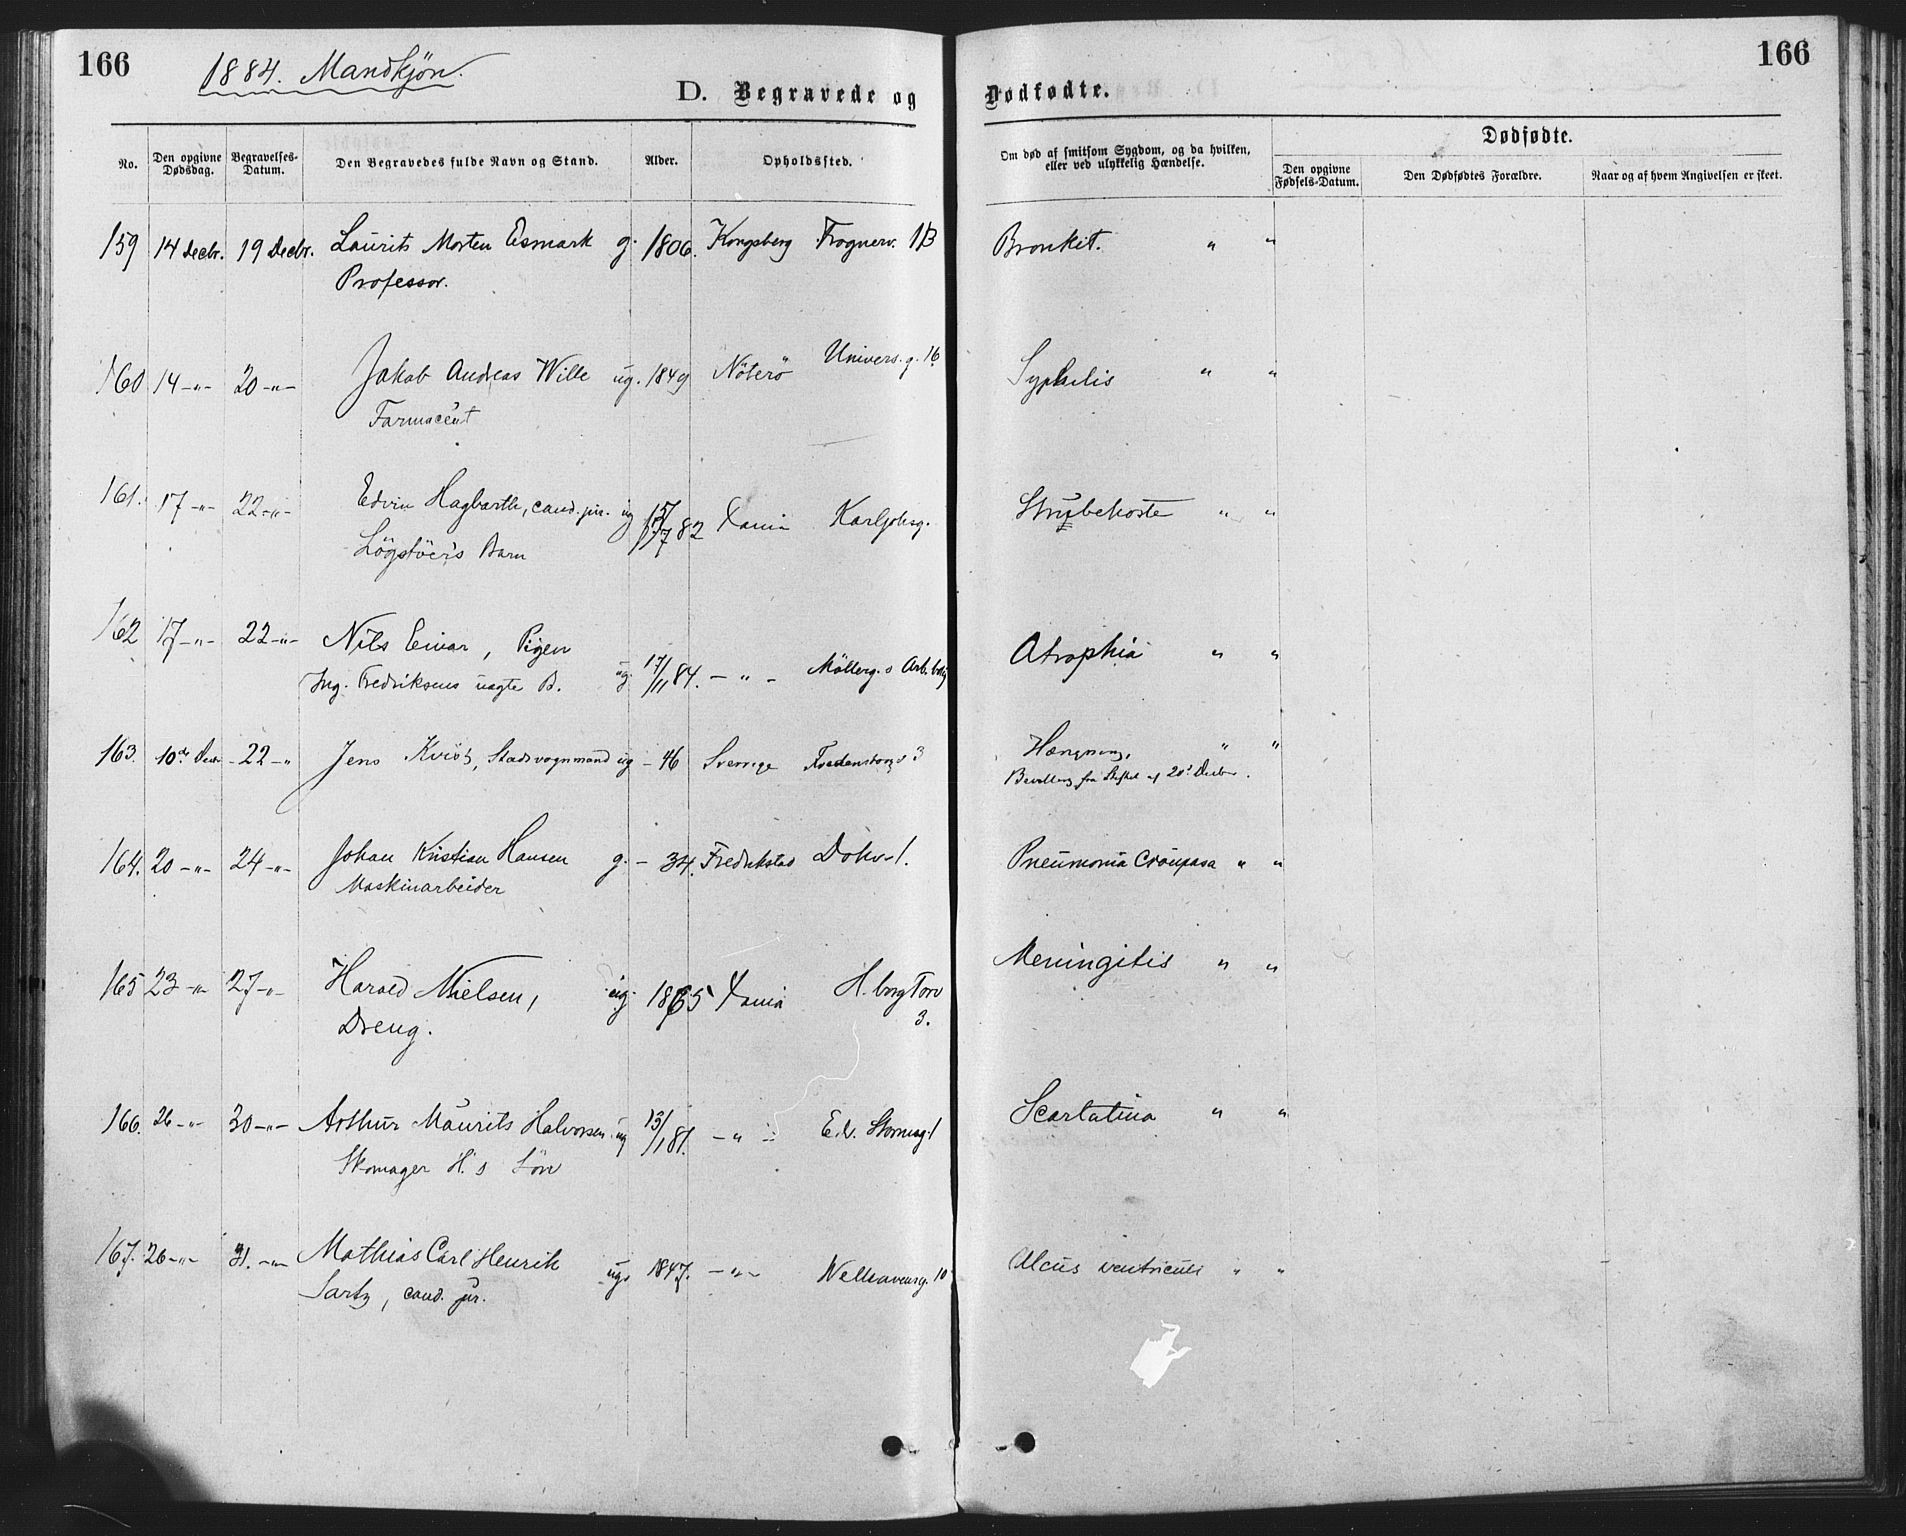 166
1884. Mandkjøn.
D. Begravede og
Dødfødte.
166
No.
Den opgivne Dødsdag.
Begravelses-Datum.
Den Begravedes fulde Navn og Stand.
Alder.
Opholdssted.
Om død af smitsom Sygdom, og da hvilken, eller ved ulykkelig Hændelse.
Dødfødte.
Den opgivne Fødsels-Datum.
Den Dødfødtes Forældre.
Naar og af hvem Angivelsen er skeet.
159 14 Decbr. 19 Decbr. Laurits Morten Esmark g. 1806. Kongsberg Frognerv. 1B Bronkit. " "
Professor.
160 14 -"- 20 -"- Jakob Andreas Wille ug. 1849 Nöterö Univers.g. 16 Syphilis " "
Farmaceut
161. 17 -"- 22 -"- Edvin Hagbarth, cand. jur. ug 82 Xania Karljohsg. Strubehoste " "
Lögstöer's Barn
162 17 -"- 22 -"- Nils Einar, Pigen
Ing. Fredriksens uægte B. ug. 17/11 84. - " - Möllerg.s Arb.bolig Atrophia " "
163. 10de Decbr - 22 -" Jens Kvist, Stadsvognmand ug - 46 Sverrige 3 Hængning, " "
Bevilling fra Stiftet af 20d Decbr.
164. 20 -"- 24 -"- Johan Kristian Hansen g. - 34. Fredrikstad Dokv. 1. Pneumonia Croupasa " "
Maskinarbeider
165 23 -"- 27 -"- Harald Nielsen, ug. 1865 Xania H. borg Torv Meningitis " "
Dreng. 3.
166. 26 -"- 30 -"- Arthur Maurits Halvorsen ug 13/1 81. - " - Edv. Stormsg. 1 Scarlatina " "
Skomager H.'s Sön
167. 26 -"- 31. -"- Mathias Carl Henrik ug. 1847. - " - Welhavensg. 10 Ulcus ventriculi " "
Sartz, cand. jur.